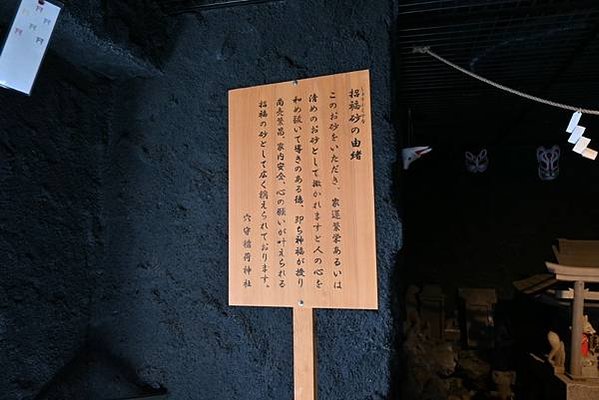 招福砂の由緒
このお砂をいただき、家運繁栄あるいは
清めのお砂として撒かれますと人の心を
和め祓いて導きのある徳、即ち神福が授り
商売繁昌、家内安全、心の願いが叶えられる
招福の砂として広く称えられております。
穴守稲荷神社